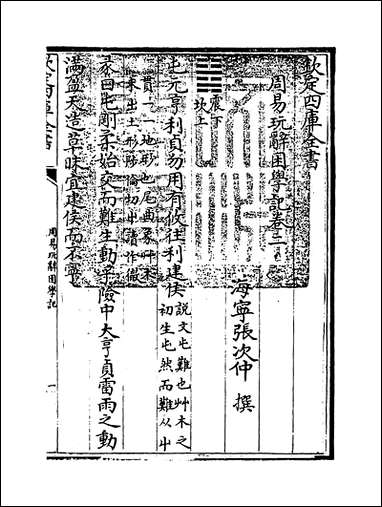 欽定四庫全書
周易玩辭困學記卷二
海寧張次仲 撰
震下
坎上
屯元亨利貞勿用有攸往利建侯
說文屯難也艸木之
初生屯然而難从屮
貫一一地形也尾曲象艸木
未出土形
彖曰屯剛柔始交而難生動乎險中大亨貞雷雨之動
滿盈天造草昧宜建侯而不寧
欽定四庫全書
周易玩辭困學記
一